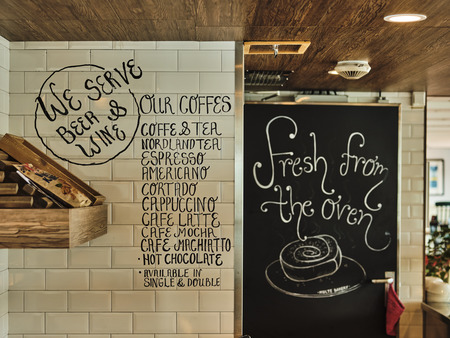 WE SERVE
BEER &
WINE
OUR COFFES
COFFE & TEA
NORDLAND TEA
ESPRESSO
AMERICANO
CORTADO
CAPPUCCINO
CAFE LATTE
CAFE MOCHA
CAFE MACHIATTO
• HOT CHOCOLATE
• AVAILABLE IN
SINGLE & DOUBLE
Fresh from
the oven